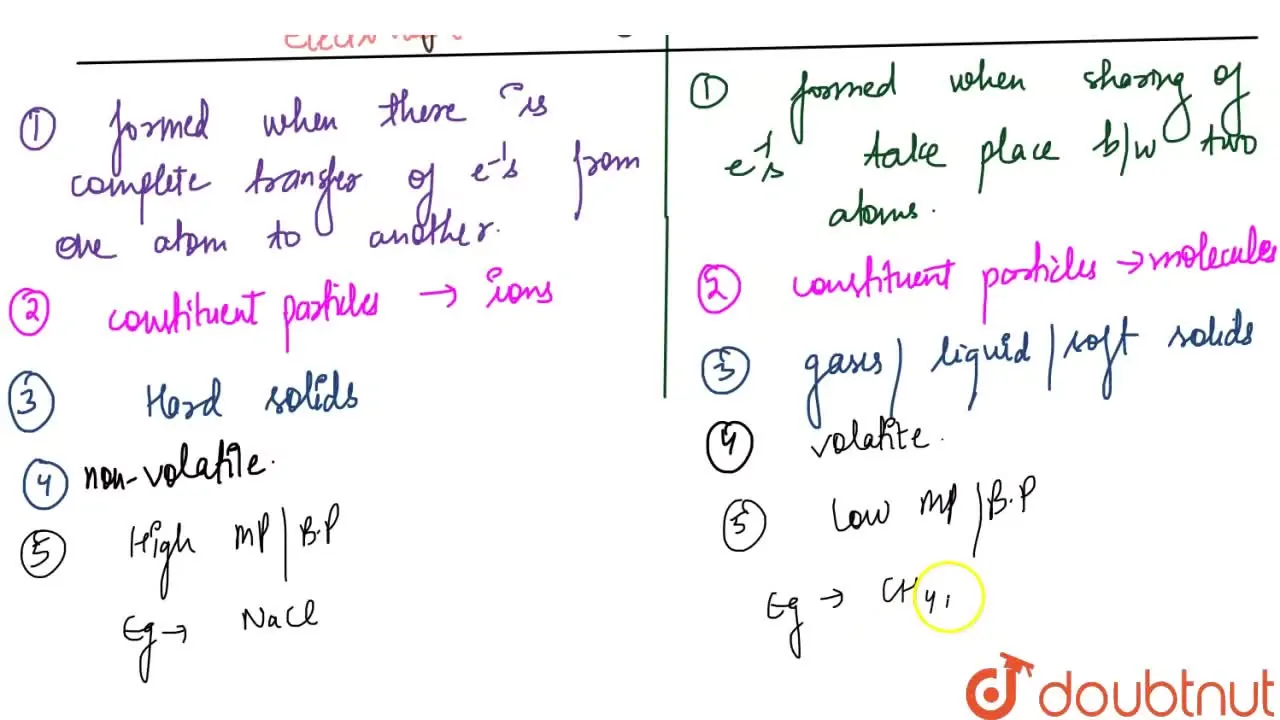 ① formed when there is
complete transfer of e⁻¹s from
one atom to another.
② constituent particles → ions
③ Hard solids
④ non-volatile.
⑤ High MP | B.P
Eg → NaCl
① formed when sharing of
e⁻¹s take place b/w two
atoms.
② constituent particles → molecules
③ gases | liquid | soft solids
④ volatite.
⑤ Low MP | B.P
Eg → CH4,
doubtnut